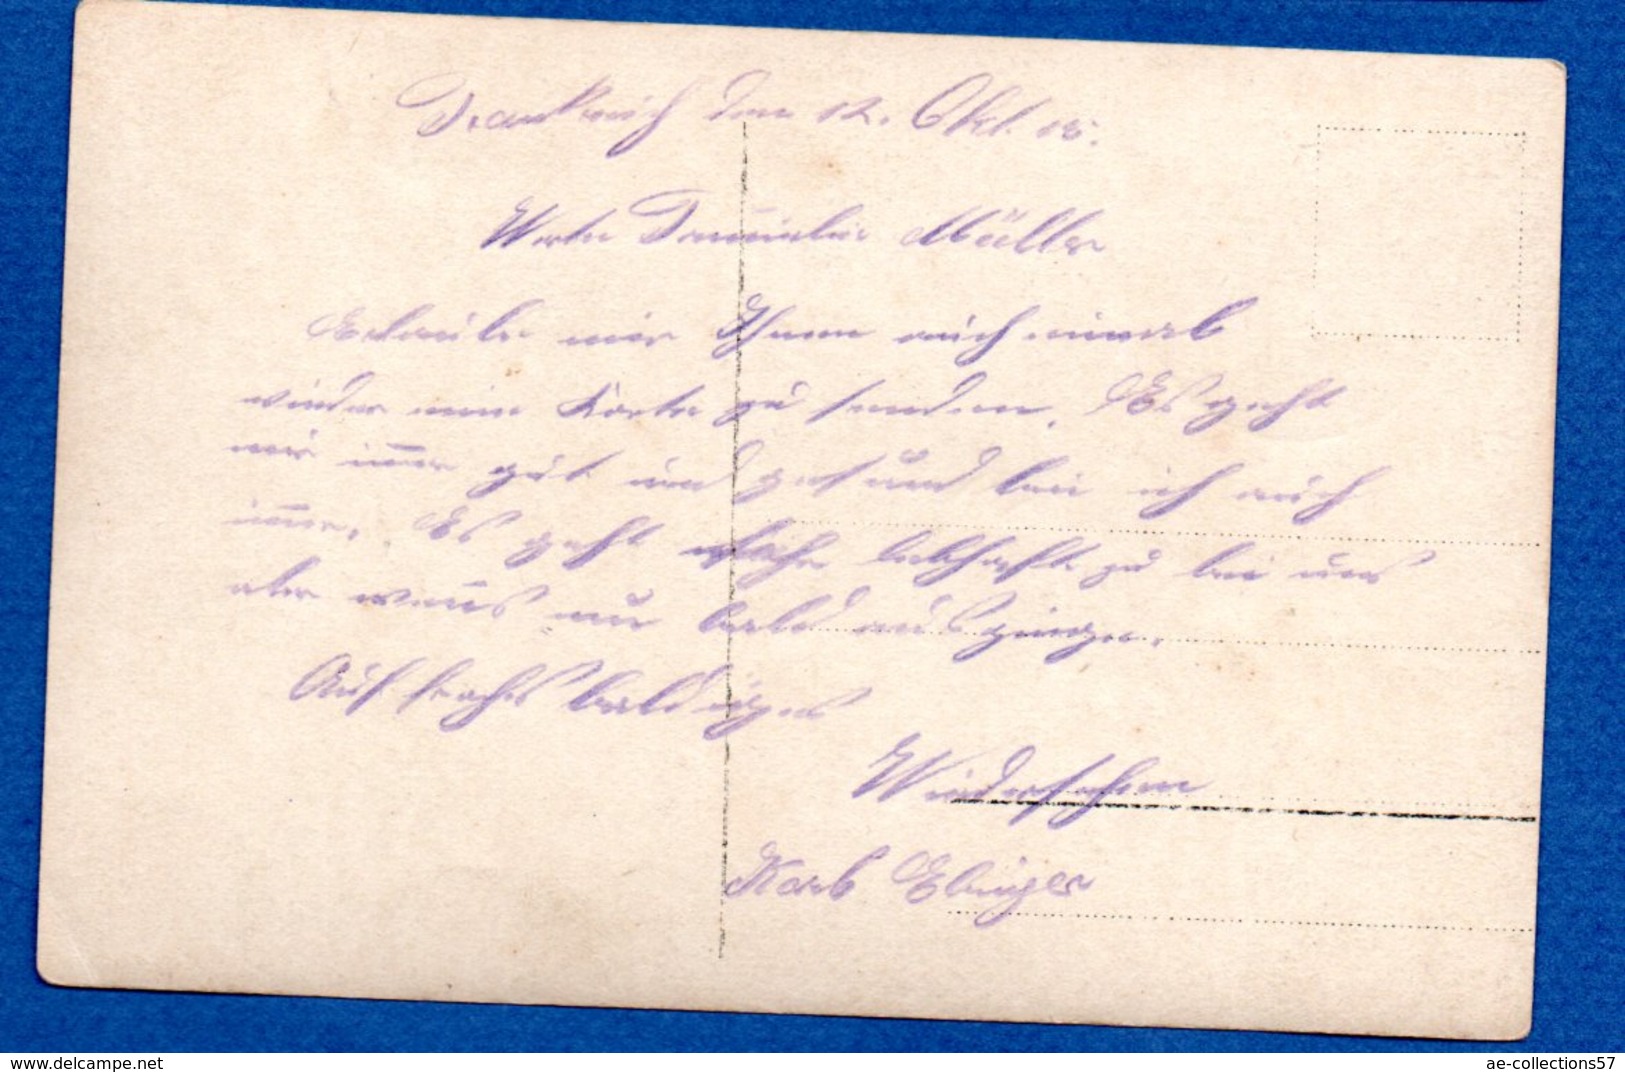 Frankreich den 12. Okt. 18.
Werte Familie Müller
Erlaube mir Ihnen auch einmal
wieder eine Karte zu senden. Es geht
mir im̅er gut und gesund bin ich auch
im̅er. Es geht lebhaft zu bei uns
aber wenns nur bald ausginge.
Auf frohes baldiges
Wiedersehen
Karl Ebinger
www.delcampe.net
ae-collections57